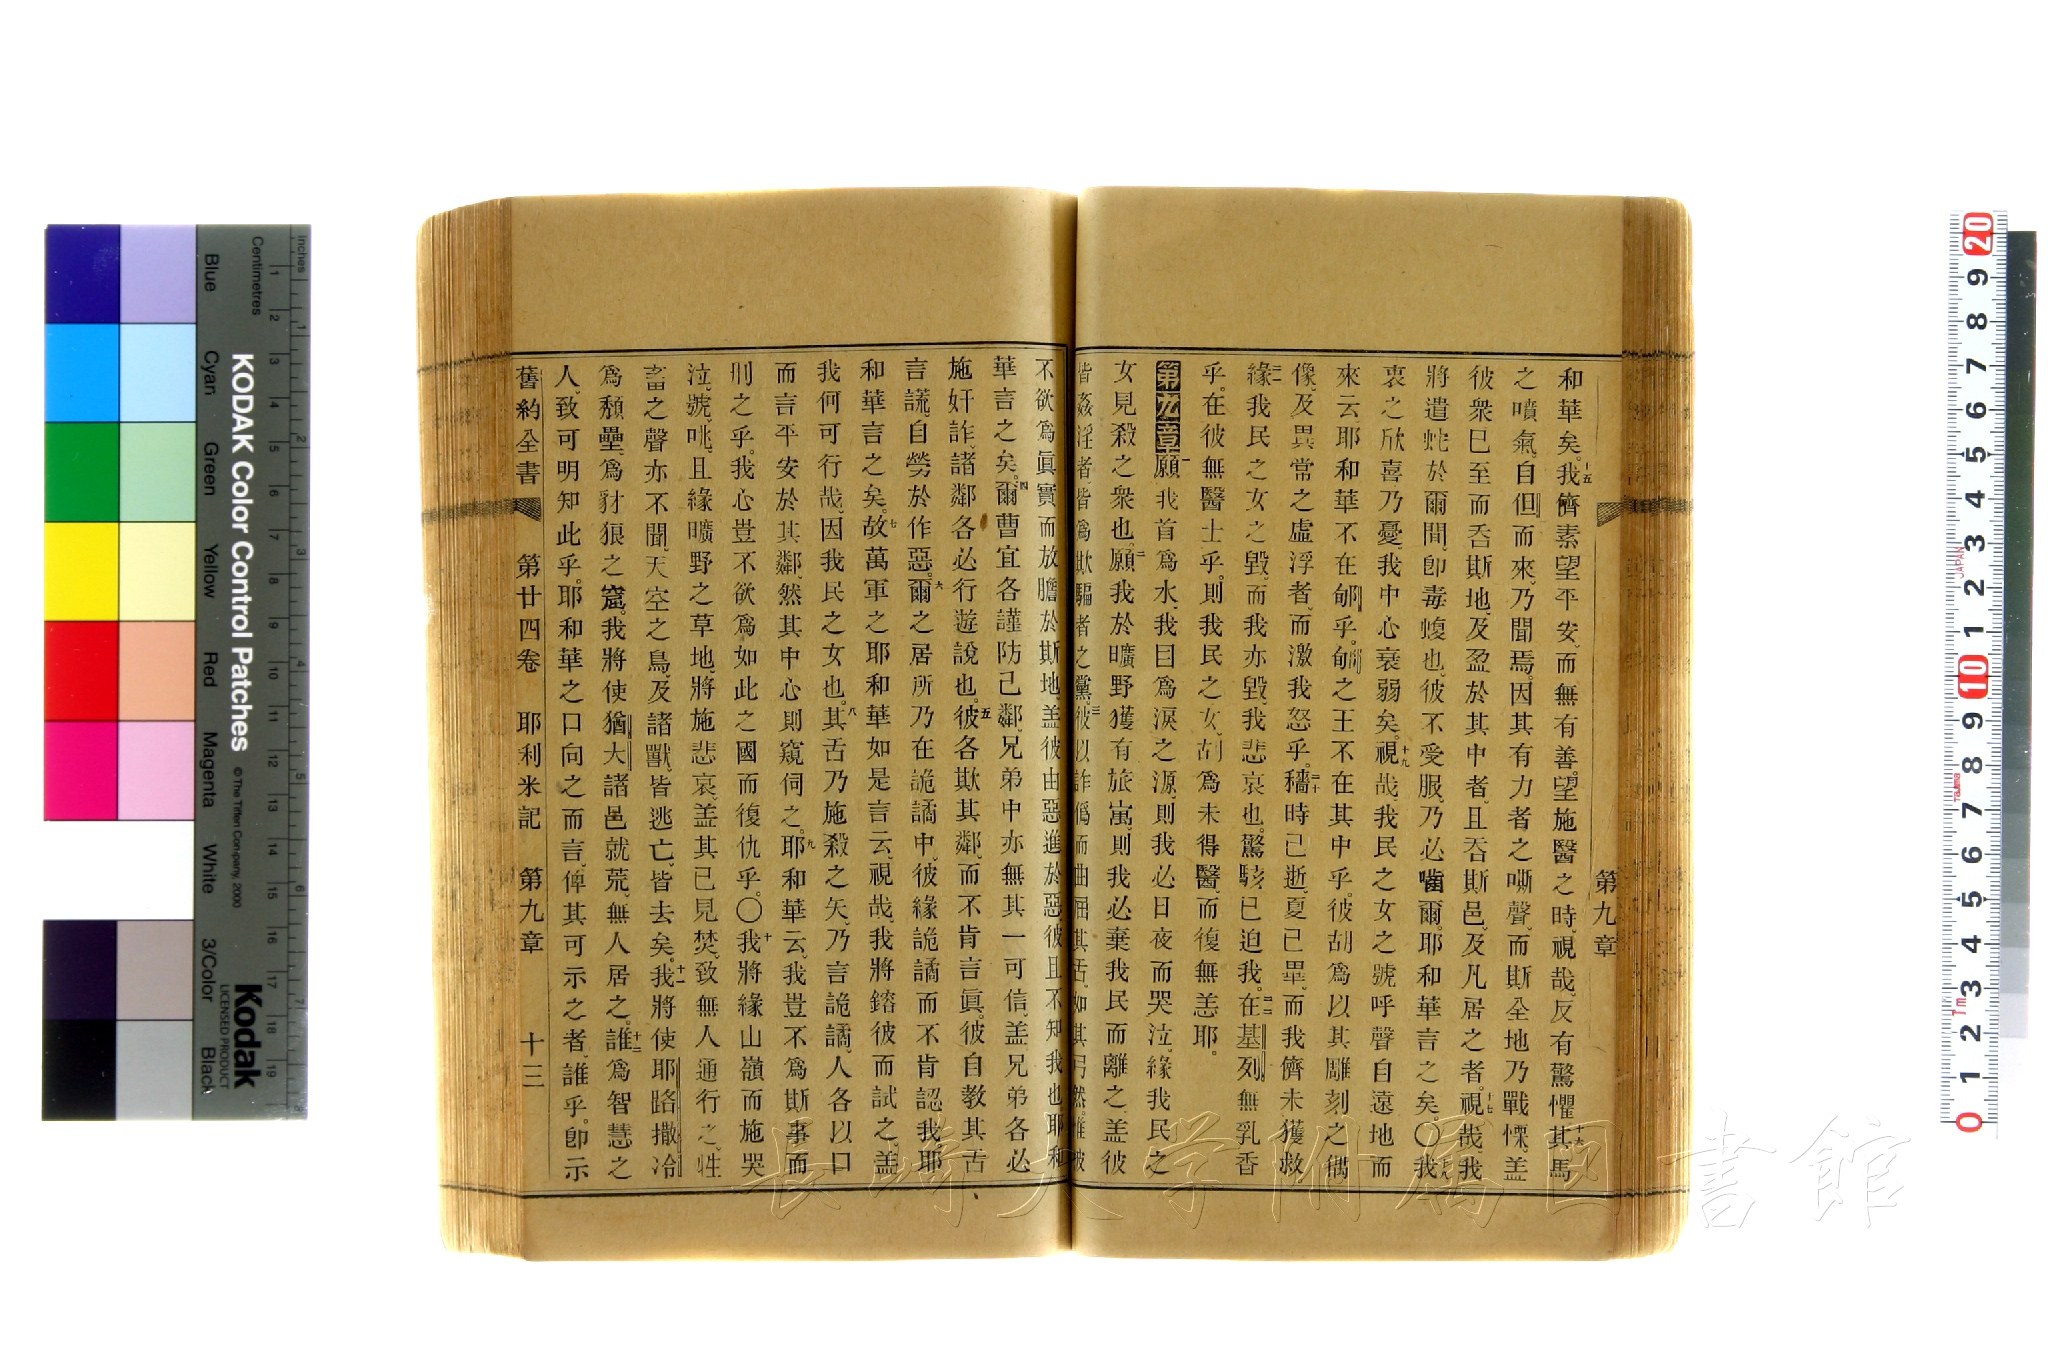 第九章
和華矣。十五我儕素望平安、而無有善。望施醫之時、視哉、反有驚懼。十六其馬
之噴氣、自但而來、乃聞焉。因其有力者之嘶聲、而斯全地乃戰慄。盖
彼衆已至而吞斯地、及盈於其中者、且吞斯邑、及凡居之者。十七視哉、我
將遣蛇於爾間、卽毒蝮也、彼不受服、乃必嚙爾。耶和華言之矣。〇十八我
衷之欣喜乃憂、我中心衰弱矣。十九視哉、我民之女之號呼聲自遠地而
來云、耶和華不在郇乎。郇之王不在其中乎。彼胡爲以其雕刻之偶
像、及異常之虛浮者、而激我怒乎。二十穡時已逝、夏已畢、而我儕未獲救。
二一緣我民之女之毀、而我亦毀、我悲哀也。驚駭已迫我。二二在基列無乳香
乎。在彼無醫士乎。則我民之女、胡爲未得醫、而復無恙耶。
第九章一願我首爲水、我目爲淚之源、則我必日夜而哭泣、緣我民之
女見殺之衆也。二願我於曠野獲有旅寓、則我必棄我民而離之、盖彼
皆姦淫者、皆爲欺騙者之黨。三彼以詐僞而曲屈其舌、如其弓然。惟彼
不欲爲眞實而放膽於斯地、盖彼由惡進於惡、彼且不知我也、耶和
華言之矣。四爾曹宜各謹防己鄰、兄弟中亦無其一可信、盖兄弟各必
施奸詐、諸鄰各必行遊說也。五彼各欺其鄰、而不肯言眞。彼自教其舌
言謊、自勞於作惡。六爾之居所乃在詭譎中、彼緣詭譎而不肯認我。耶
和華言之矣。七故萬軍之耶和華如是言云、視哉、我將鎔彼而試之。盖
我何可行哉、因我民之女也。八其舌乃施殺之矢、乃言詭譎、人各以口
而言平安於其鄰、然其中心則窺伺之。九耶和華云、我豈不爲斯事而
刑之乎。我心豈不欲爲如此之國而復仇乎。〇十我將緣山嶺而施哭
泣、號咷、且緣曠野之草地、將施悲哀、盖其已見焚、致無人通行之、牲
畜之聲亦不聞、天空之鳥、及諸獸、皆逃亡、皆去矣。十一我將使耶路撒冷
爲頽壘、爲豺狼之窟。我將使猶大諸邑就荒、無人居之。十二誰爲智慧之
人、致可明知此乎。耶和華之口向之而言、俾其可示之者、誰乎。卽示
舊約全書 第廿四卷 耶利米記 第九章 十三
長崎大学附属図書館
KODAK Color Control Patches
© The Tiffen Company, 2000
Kodak
LICENSED PRODUCT
Inches
Centimetres
Blue Cyan Green Yellow Red Magenta White 3/Color Black
1 2 3 4 5 6 7 8 9 10 11 12 13 14 15 16 17 18 19
20 9 8 7 6 5 4 3 2 1 10 9 8 7 6 5 4 3 2 1 0
JAPAN
Tajima